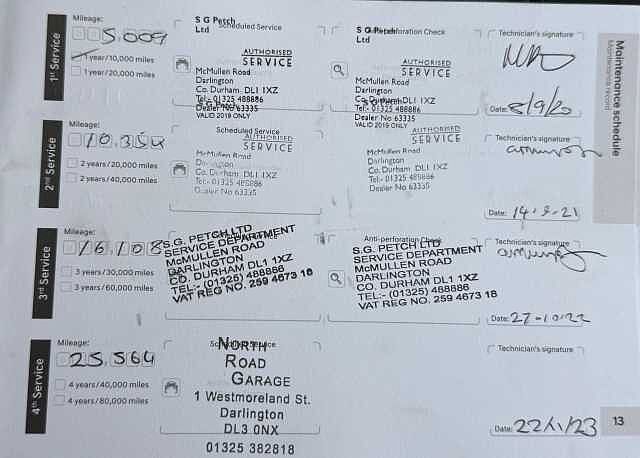 Maintenance schedule
Maintenance record
1st Service
Mileage:
5.009
1 year/10,000 miles
1 year/20,000 miles
Scheduled Service
S G Petch
Ltd
AUTHORISED
SERVICE
McMullen Road
Darlington
Co. Durham DL1 1XZ
Tel:- 01325 488886
Dealer No 63335
VALID 2019 ONLY
Anti-perforation Check
S G Petch
Ltd
AUTHORISED
SERVICE
McMullen Road
Darlington
Co. Durham DL1 1XZ
Tel:- 01325 488886
Dealer No 63335
VALID 2019 ONLY
Technician's signature
Date: 8/9/20
2nd Service
Mileage:
10.354
2 years/20,000 miles
2 years/40,000 miles
Scheduled Service
AUTHORISED
SERVICE
McMullen Road
Darlington
Co. Durham DL1 1XZ
Tel:- 01325 488886
Dealer No 63335
AUTHORISED
SERVICE
McMullen Road
Darlington
Co. Durham DL1 1XZ
Tel:- 01325 488886
Dealer No 63335
Technician's signature
Date: 14-9-21
3rd Service
Mileage:
16.108
3 years/30,000 miles
3 years/60,000 miles
S.G. PETCH LTD
SERVICE DEPARTMENT
McMULLEN ROAD
DARLINGTON
CO. DURHAM DL1 1XZ
TEL:- (01325) 488886
VAT REG NO. 259 4673 16
Anti-perforation Check
S.G. PETCH LTD
SERVICE DEPARTMENT
McMULLEN ROAD
DARLINGTON
CO. DURHAM DL1 1XZ
TEL:- (01325) 488886
VAT REG NO. 259 4673 16
Technician's signature
Date: 27-10-22
4th Service
Mileage:
25.564
4 years/40,000 miles
4 years/80,000 miles
Scheduled Service
NORTH
ROAD
GARAGE
1 Westmoreland St.
Darlington
DL3 0NX
01325 382818
Technician's signature
Date: 22/11/23
13